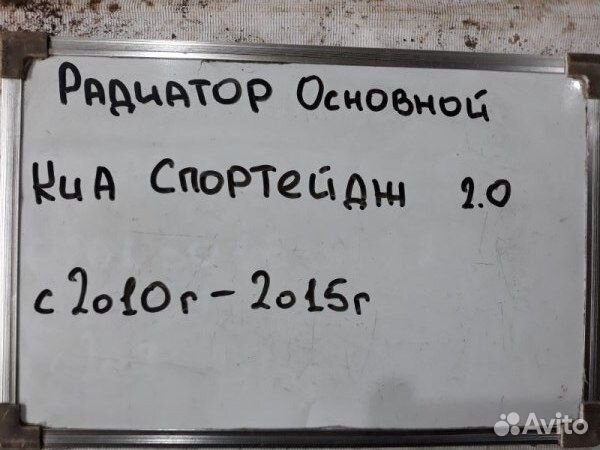 Радиатор Основной
Киа Спортейдж 2.0
с 2010г - 2015г
Avito